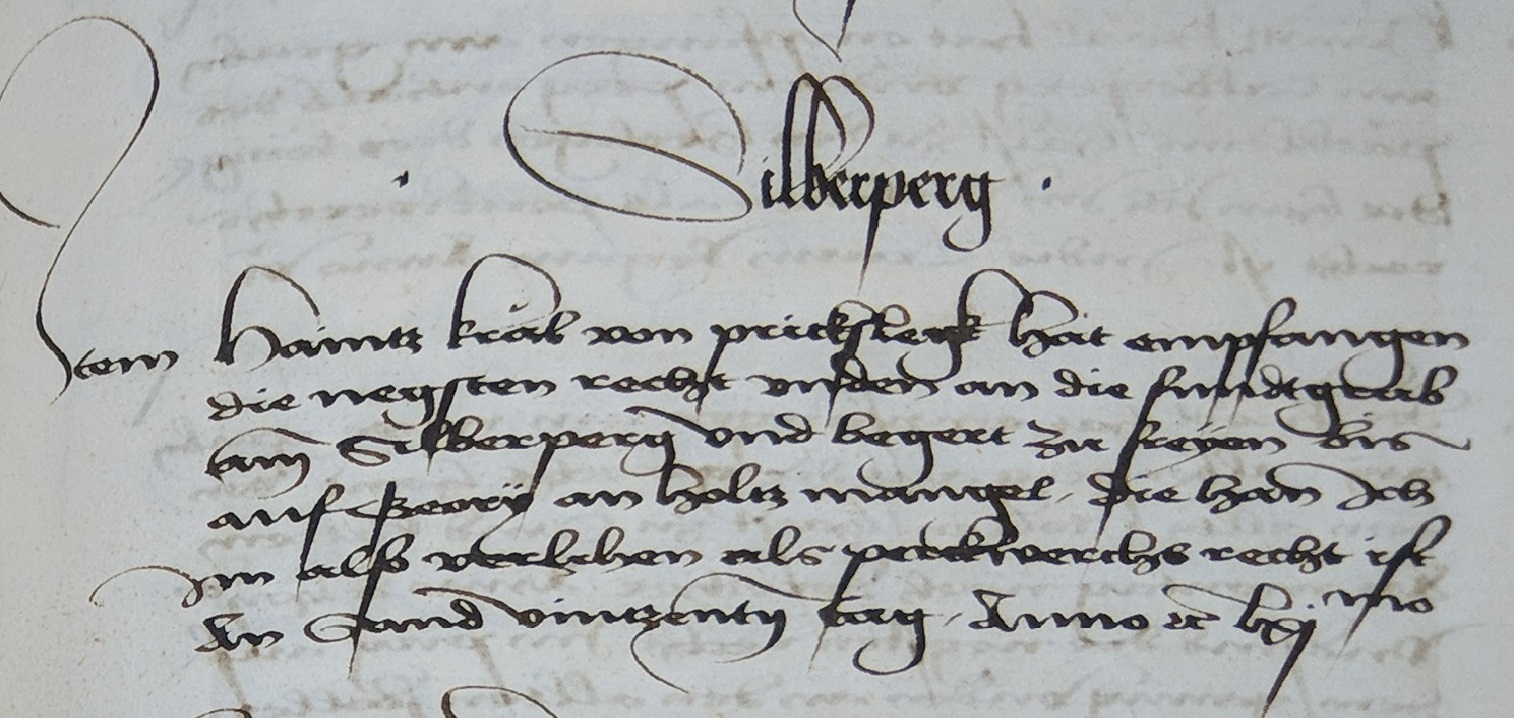 . Silberperg .
Item Haintz kral von prickslegk hat empfangen
die negsten recht vnden an die fundtgrub
am Silberperg vnd begert zu freyen bis
auf Georij an holtz mangel, die han Ich
Im also verlihen als perckwerchs recht ist
An Sand vintzenty tag, Anno etc lxj mo